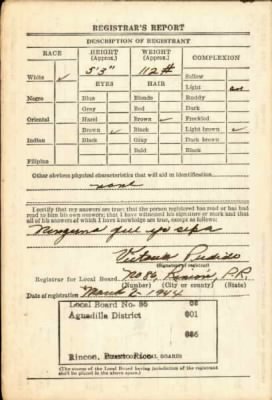 REGISTRAR'S REPORT
DESCRIPTION OF REGISTRANT
RACE HEIGHT (Approx.) WEIGHT (Approx.) COMPLEXION
5'3" 112#
White ✓ EYES HAIR Sallow
Light
Negro Blue Blonde Ruddy
Gray Red Dark
Oriental Hazel Brown ✓ Freckled
Brown ✓ Black Light brown ✓
Indian Black Gray Dark brown
Bald Black
Filipino
Other obvious physical characteristics that will aid in identification
none
I certify that my answers are true; that the person registered has read or has had
read to him his own answers; that I have witnessed his signature or mark and that
all of his answers of which I have knowledge are true, except as follows:
Ninguna que yo sepa
(Signature of registrar)
Registrar for Local Board No 86 Rincón, P.R.
(Number) (City or county) (State)
Date of registration 1944
Local Board No. 86 02
Aguadilla District 001
086
Rincon, Puerto Rico
(The stamp of the Local Board having jurisdiction of the registrant
shall be placed in the above space.)